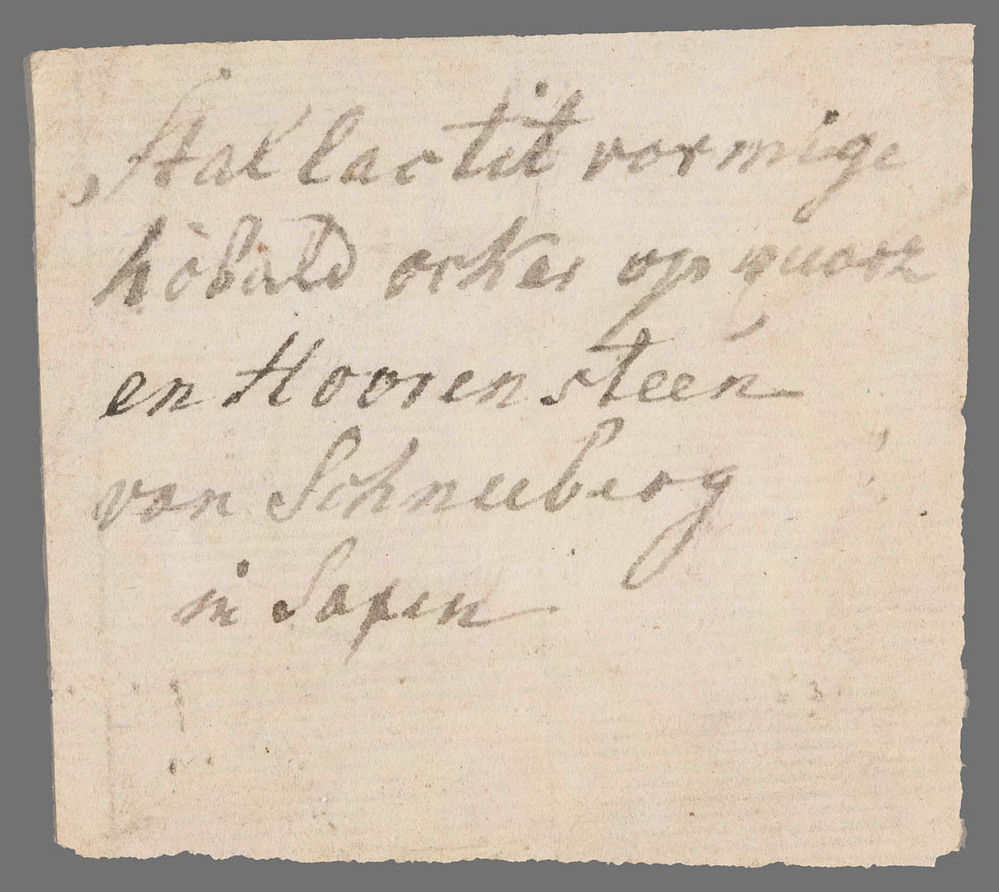 Stallactit vormige
kobald orker op quarz
en Hoorensteen
van Schneeberg
in Saxen